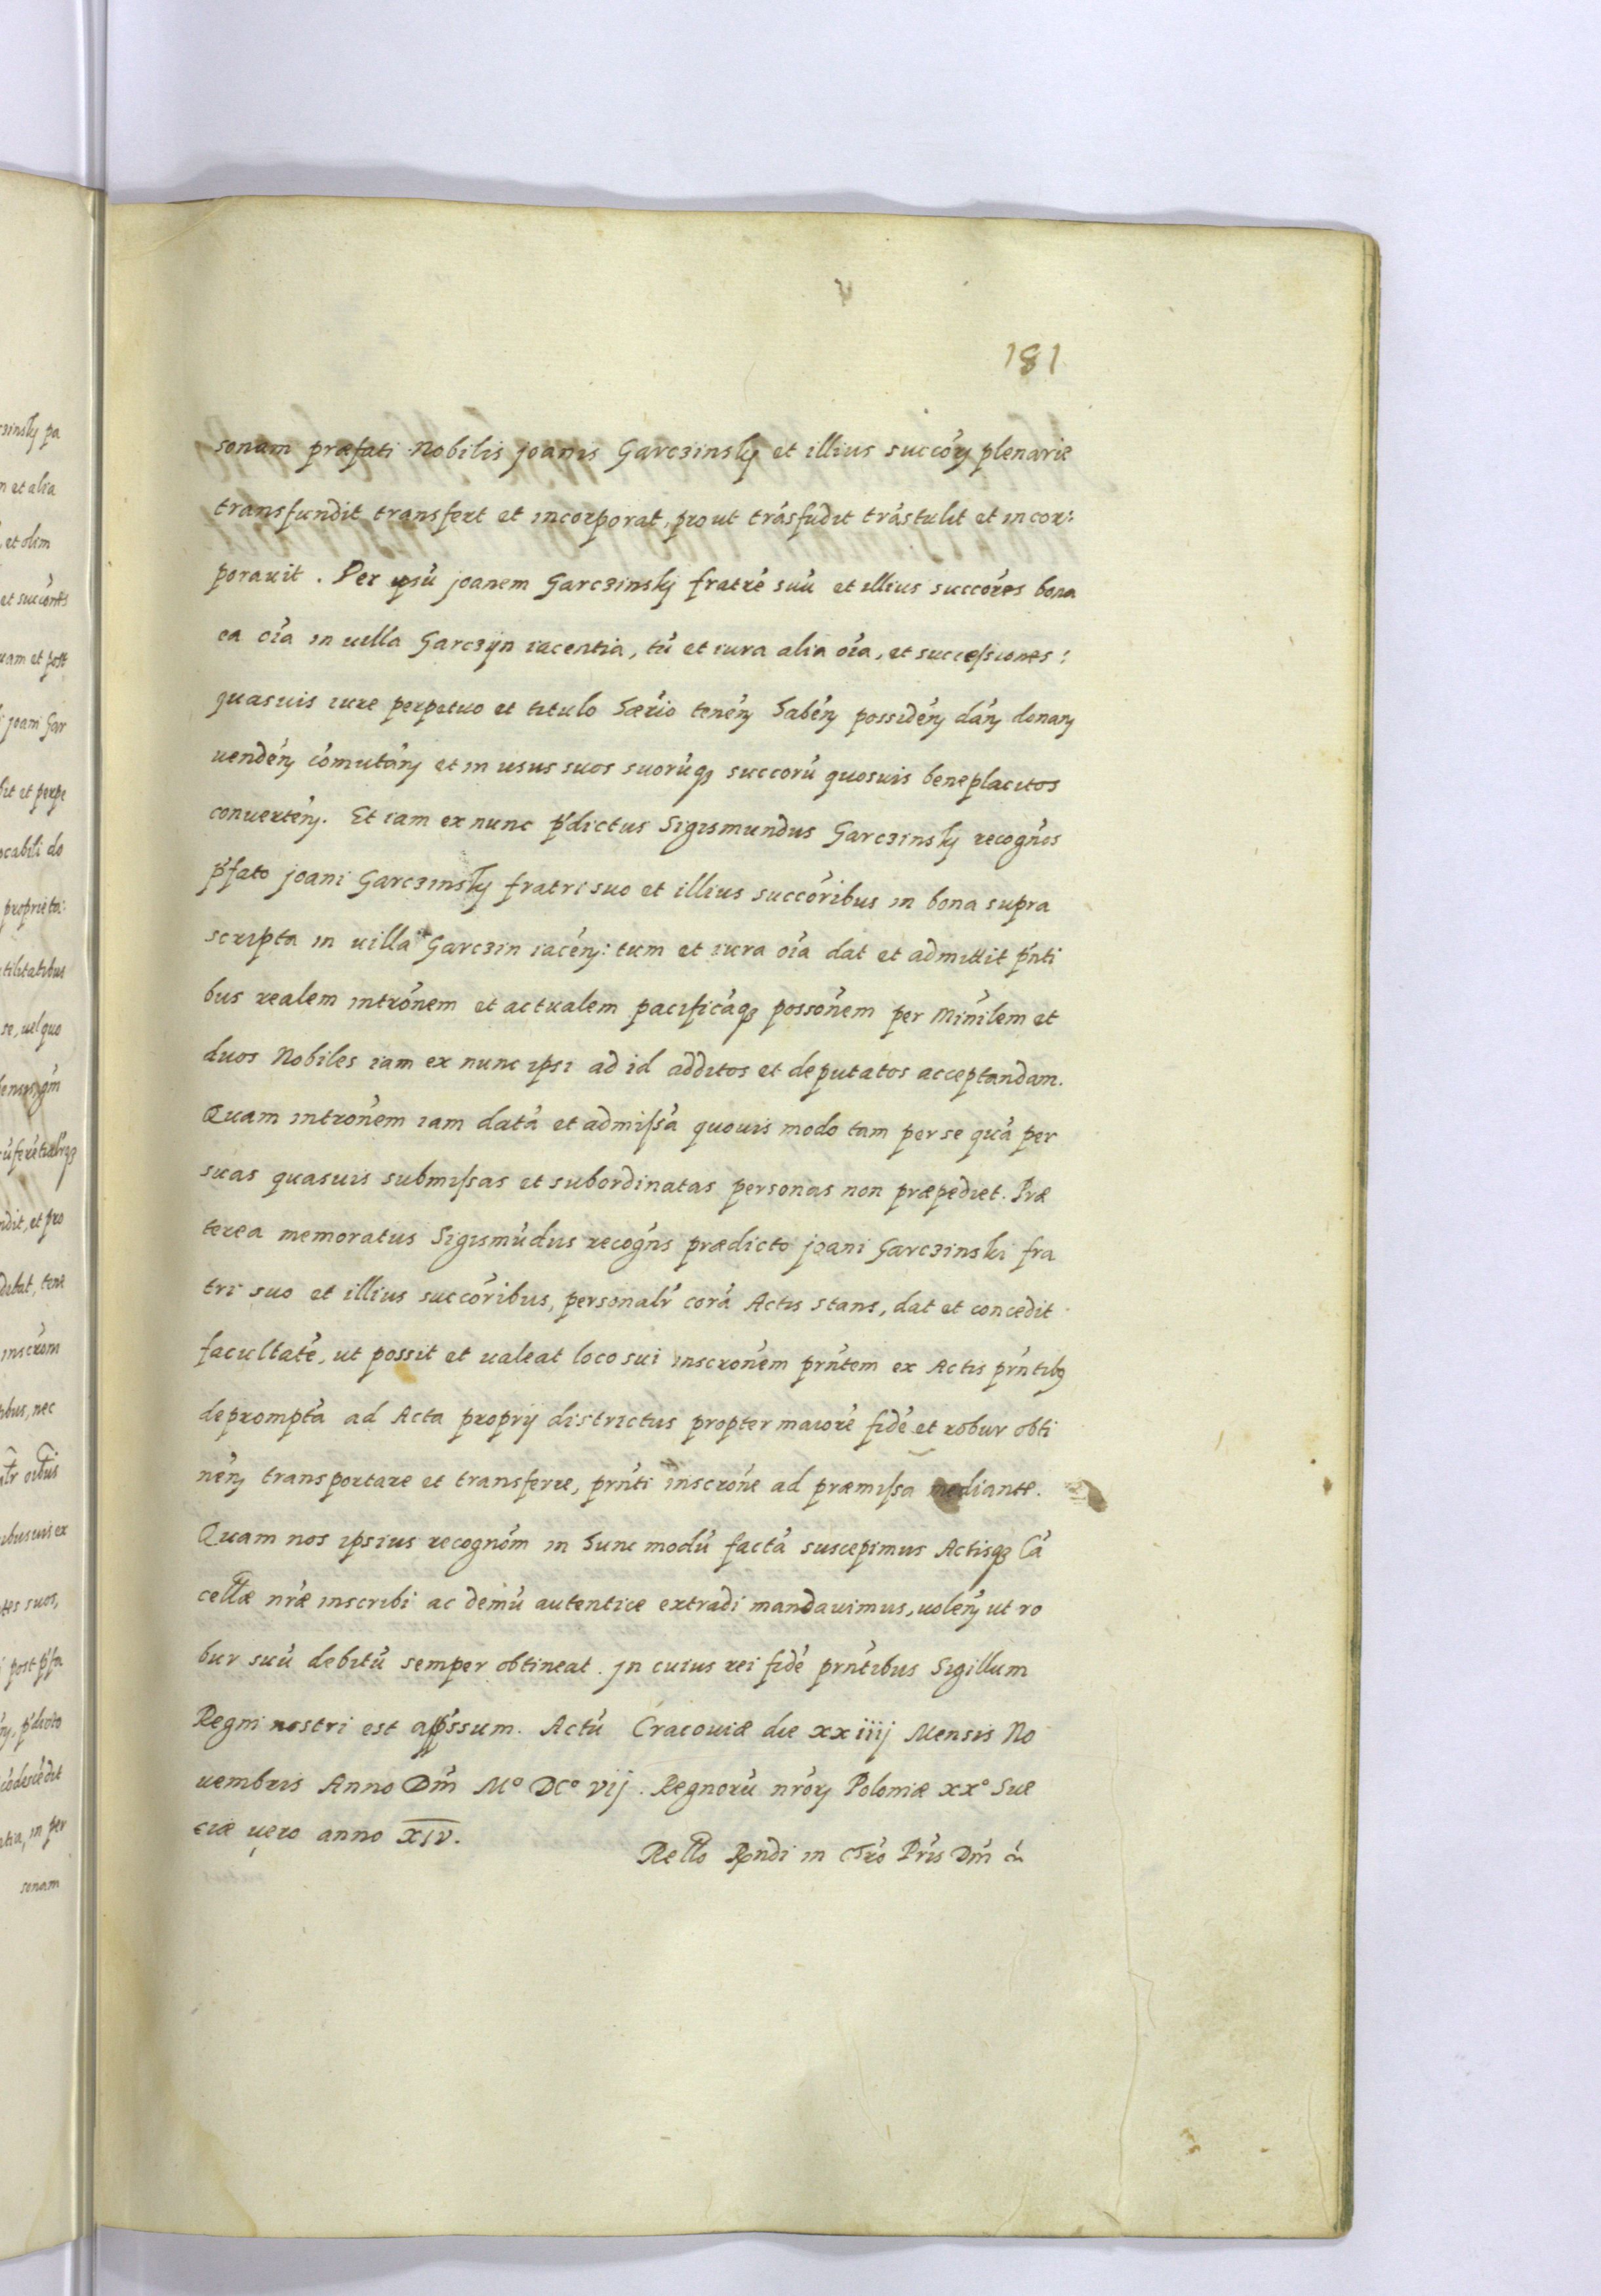 181
sonam præfati Nobilis Joanis Garczinsky et illius succór[um] plenarie
transfundit transfert et incorporat, prout trãsfũdit trãstulit et incor:
porauit. Per ipsũ Joanem Garczinskj fratrẽ suũ et illius succóres bona
ea oĩa in uilla Garczÿn iacentia, tũ et iura alia oĩa, et successiones:
quasuis iure perpetuo et titulo hærio tenẽn habẽn possidẽn dãn donan
uendẽn cõmutãn et in usus suos suorũq[ue] succorũ quosuis beneplacitos
conuertẽn. Et iam ex nunc p̃dictus Sigismundus Garczinskj recogñs
p̃fato Joani Garczinskj fratri suo et illius succóribus in bona supra
scripta in uilla Garczin iacẽn: tum et iura oĩa dat et admittit p̃nti
bus realem intrõnem et actualem pacificãq[ue] possõnem per Minĩlem et
duos Nobiles iam ex nunc ipsi ad id additos et deputatos acceptandam.
Quam intrõnem iam datã et admissã quouis modo tam per se quã per
suas quasuis submissas et subordinatas personas non præpediet. Præ
terea memoratus Sigismũdus recogñs prædicto Joani Garczinski fra
tri suo et illius succóribus, personalr̃ corã Actis stans, dat et concedit
facultatẽ, ut possit et ualeat loco sui inscrõnem prñtem ex Actis prñtib[us]
depromptã ad Acta proprij districtus propter maiorẽ fidẽ et robur obti
nẽn transportare et transferre, prñti inscrõne ad præmissa mediante.
Quam nos ipsius recognõm in hunc modũ factã suscepimus Actisq[ue] Cã
cellæ nr̃æ inscribi ac demũ autentice extradi mandauimus, uolẽn ut ro
bur suũ debitũ semper obtineat. Jn cuius rei fidẽ prñtibus Sigillum
Regni nostri est app̃ssum. Actũ Cracouiæ die xxiiij Mensis No
uembris Anno Dm̃ Mº DCº vij. Regnorũ nr̃or[um] Poloniæ xxº Sue
ciæ uero anno XIV.
Rello Rndi in Chrõ Pr̃is Dm̃ c̃